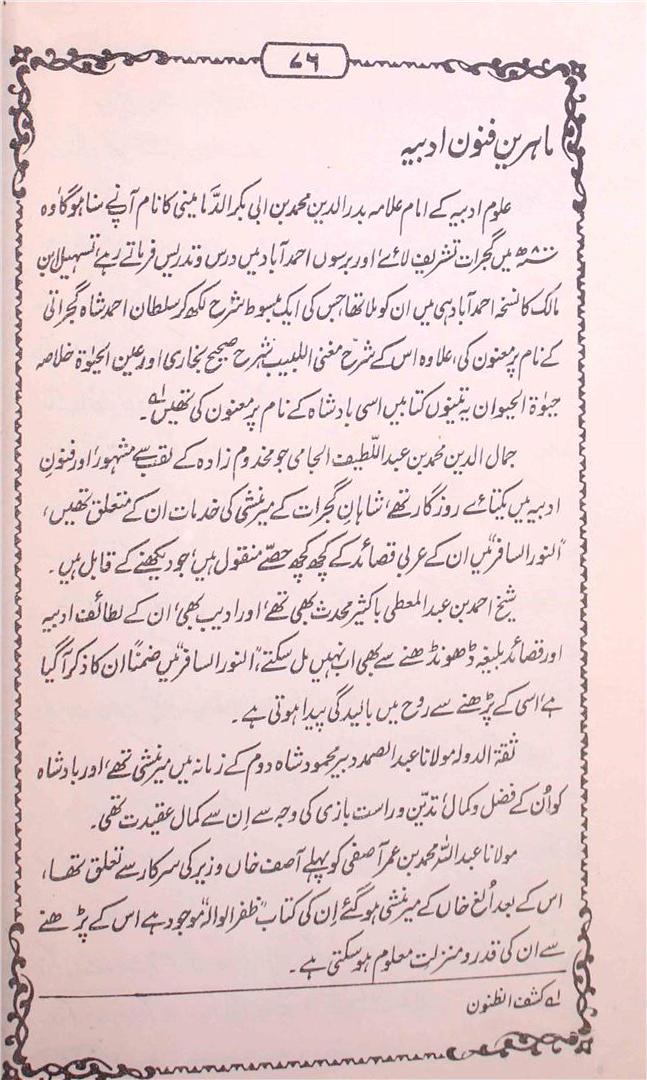 ۷۶
ماہرین فنون ادبیہ
علوم ادبیہ کے امام علامہ بدرالدین محمد بن ابی بکر الدَّمامینی کا نام آپنے سنا ہوگا وہ
۸۰۰ھ میں گجرات تشریف لائے اور برسوں احمدآباد میں درس و تدریس فرماتے رہے، تسہیل ابن
مالک کا نسخہ احمدآباد ہی میں ان کو ملا تھا، جس کی ایک مبسوط شرح لکھ کر سلطان احمد شاہ گجراتی
کے نام پر معنون کی، علاوہ اس کے شرح مغنی اللبیب، شرح صحیح بخاری اور عین الحیٰوۃ خلاصہ
حیٰوۃ الحیوان یہ تینوں کتابیں اسی بادشاہ کے نام پر معنون کی تھیں۔ ۱؎
جمال الدین محمد بن عبداللّطیف الجامی جو مخدوم زادہ کے لقب سے مشہور، اور فنونِ
ادبیہ میں یکتائے روزگار تھے، شاہانِ گجرات کے میر منشی کی خدمات ان کے متعلق تھیں،
"النور السافر" میں ان کے عربی قصائد کے کچھ کچھ حصّے منقول ہیں، جو دیکھنے کے قابل ہیں۔
شیخ احمد بن عبدالمعطی باکثیر محدث بھی تھے، اور ادیب بھی، ان کے لطائف ادبیہ
اور قصائد بلیغہ ڈھونڈھنے سے بھی اب نہیں مل سکتے، "النور السافر" میں ضمناً ان کا ذکر آگیا
ہے، اسی کے پڑھنے سے روح میں بالیدگی پیدا ہوتی ہے۔
ثقۃ الدولہ مولانا عبدالصمد دبیر محمود شاہ دوم کے زمانہ میں میر منشی تھے، اور بادشاہ
کو اُن کے فضل و کمال، تدیّن و راست بازی کی وجہ سے اِن سے کمال عقیدت تھی۔
مولانا عبداللہ محمد بن عمر آصفی کو پہلے آصف خاں وزیر کی سرکار سے تعلق تھا،
اس کے بعد اُلغ خاں کے میر منشی ہوگئے اِن کی کتاب "ظفر الوالہ" موجود ہے اس کے پڑھنے
سے ان کی قدر و منزلت معلوم ہوسکتی ہے۔
۱؎ کشف الظنون